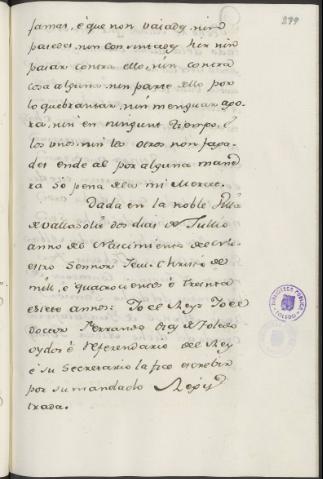 279
jamas, é que non vaiady, nin
paredes, nin consintady hir nin
pasar contra ello, nin contra
cosa alguna, nin parte dello por
lo quebrantar, nin menguar ago-
ra, nin en ningunt tiempo, é
los unos, nin los otros non faga-
des ende al por alguna mane-
ra só pena dela mi Merce.
Dada en la noble Villa
de Valladolid dos dias de Jullio
anno del Nascimiento del Nu-
estro Sennor Jesu-Christo de
mill, é quatrocientos é treinta
é siete annos. Yo el Rey. Yo el
doctor Ferrando Diaz de Toledo
oydor é Referendario del Rey
é su Secretario la fice escrebir
por su mandado Regis-
trada.
BIBLIOTECA PUBLICA
TOLEDO